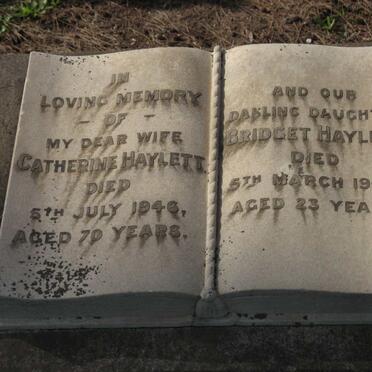 IN
LOVING MEMORY
- OF -
MY DEAR WIFE
CATHERINE HAYLETT
DIED
5TH JULY 1946,
AGED 70 YEARS.
AND OUR
DARLING DAUGHT
BRIDGET HAYL
DIED
5TH MARCH 19
AGED 23 YEA